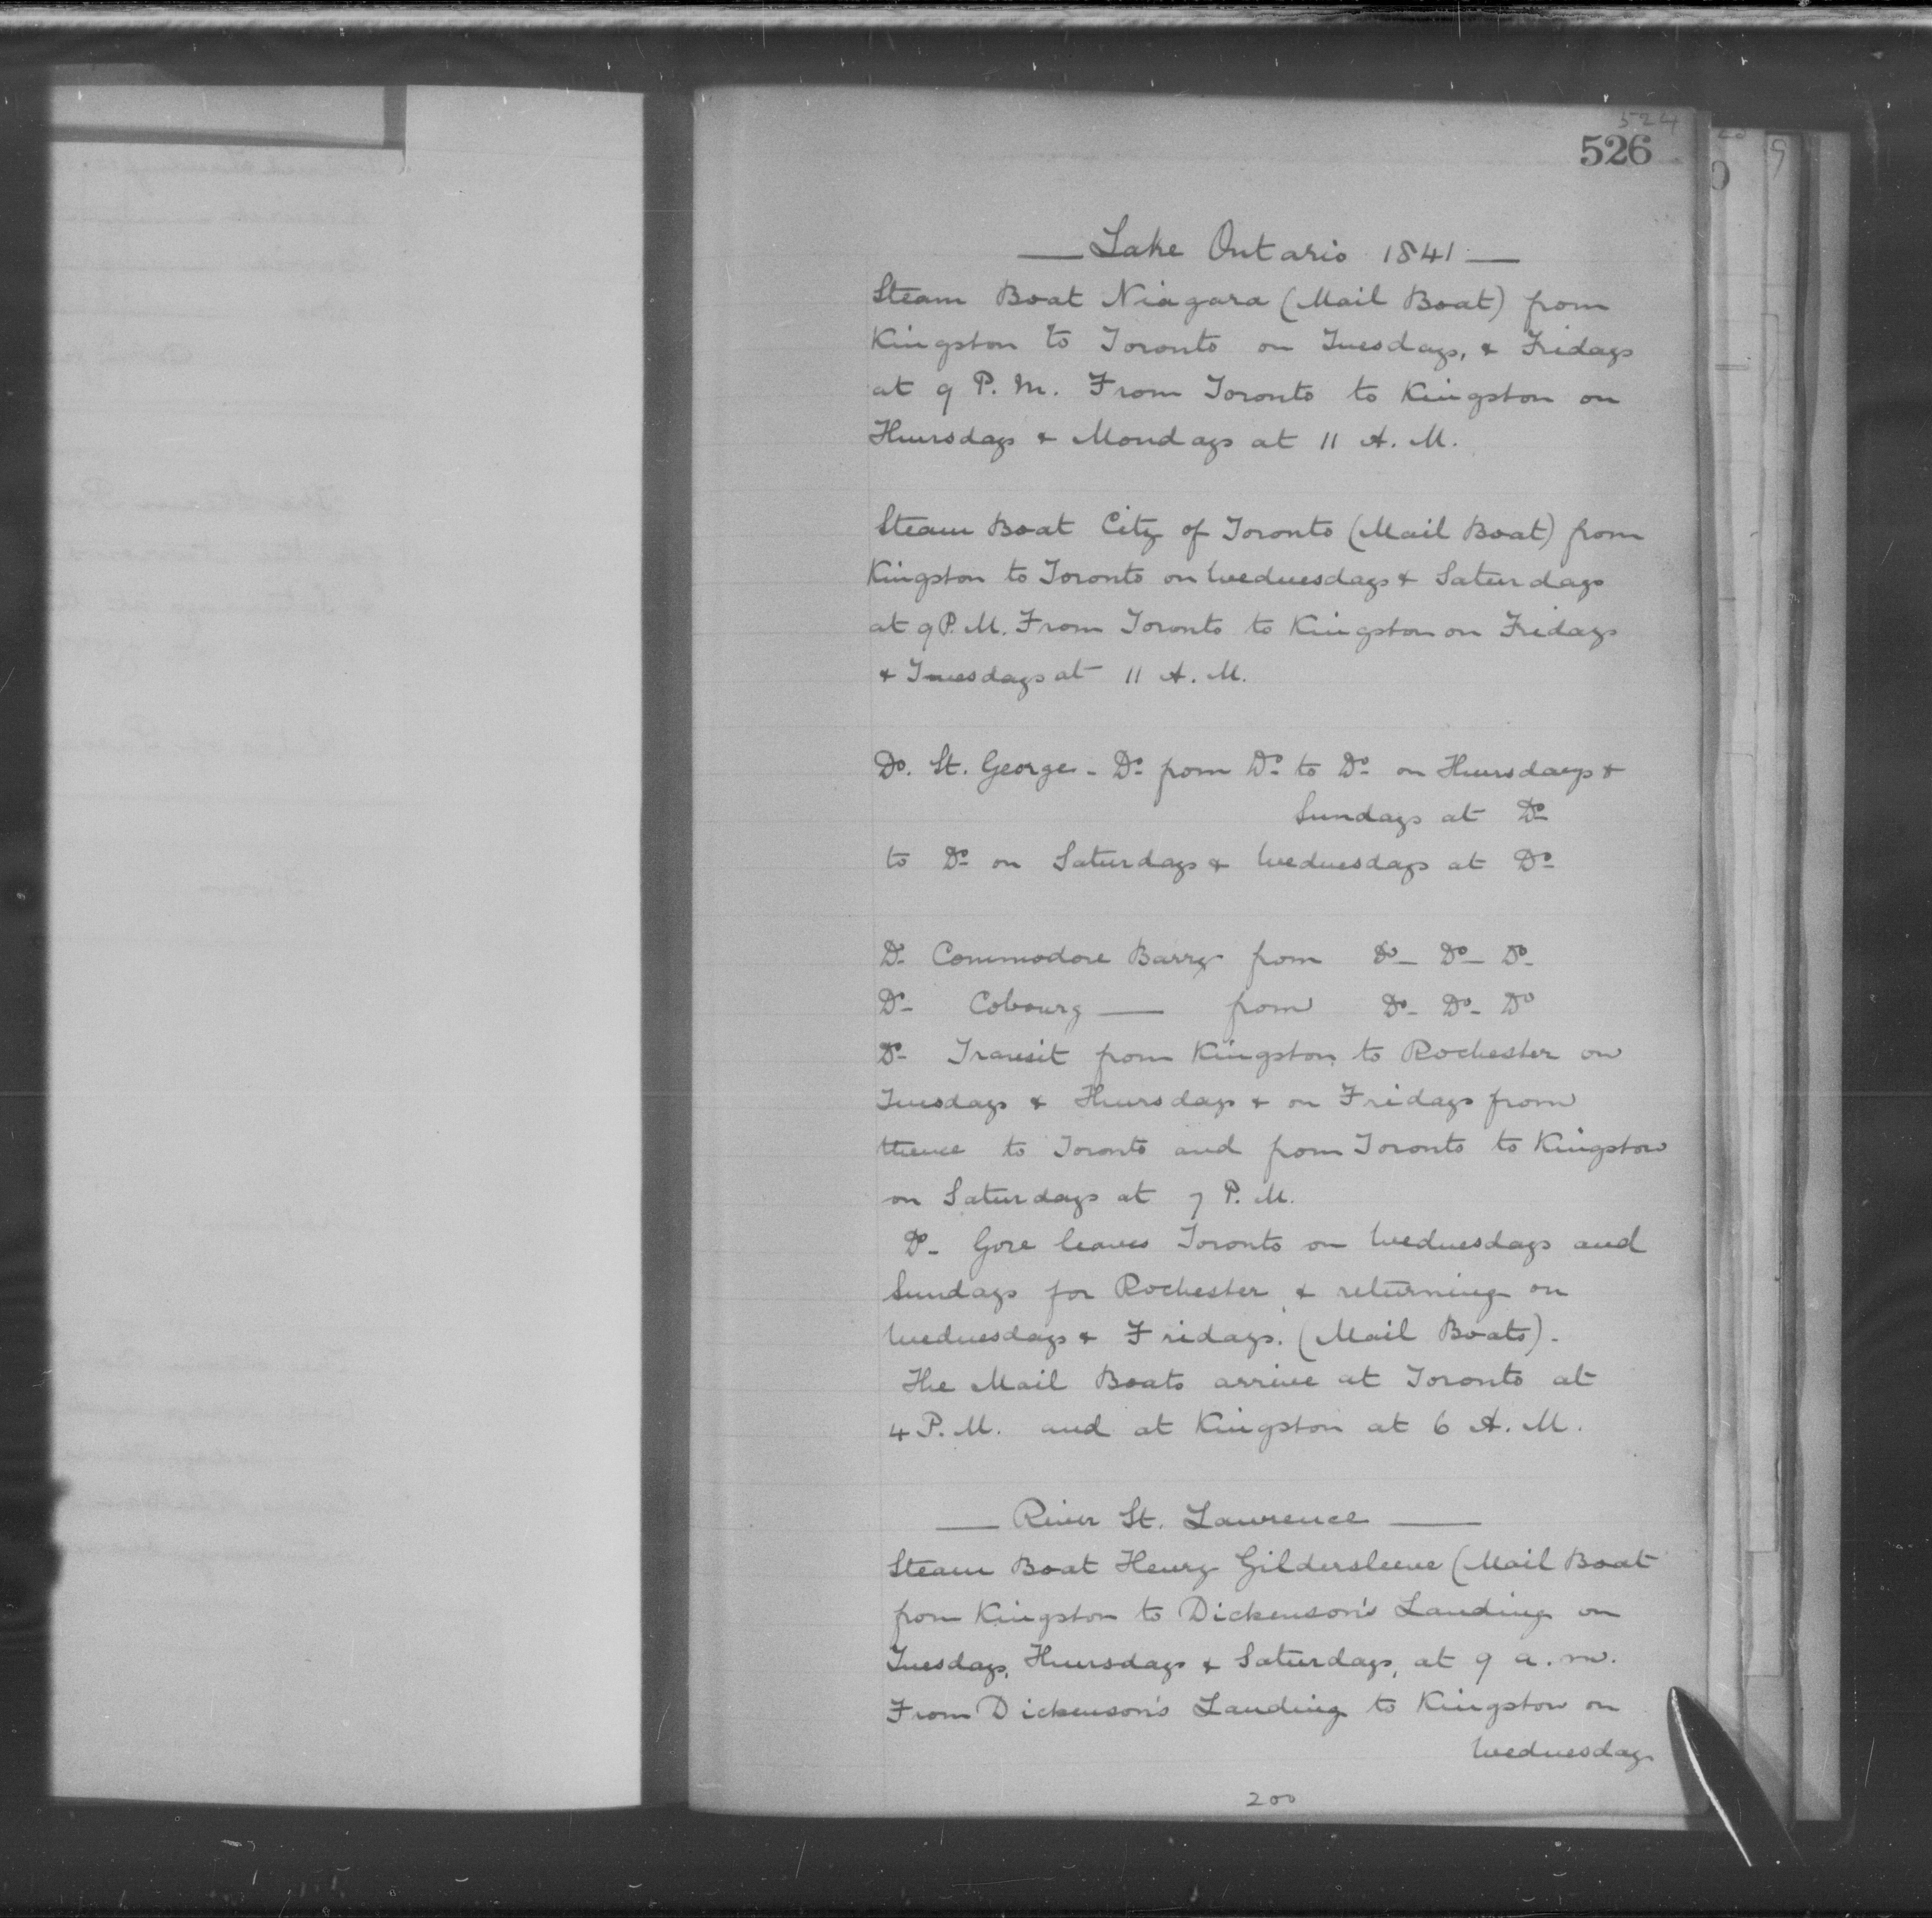 524
526
— Lake Ontario 1841 —
Steam Boat Niagara (Mail Boat) from
Kingston to Toronto on Tuesdays, & Fridays
at 9 P. M. From Toronto to Kingston on
Thursdays & Mondays at 11 A. M.
Steam Boat City of Toronto (Mail Boat) from
Kingston to Toronto on Wednesdays & Saturdays
at 9 P. M. From Toronto to Kingston on Fridays
& Tuesdays at 11 A. M.
Do. St. George - Do from Do to Do on Thursdays &
Sundays at Do
to Do on Saturdays & Wednesdays at Do
Do Commodore Barry from Do - Do - Do
Do - Cobourg — from Do - Do - Do
Do - Transit from Kingston to Rochester on
Tuesdays & Thursdays & on Fridays from
thence to Toronto and from Toronto to Kingston
on Saturdays at 7 P. M.
Do - Gore leaves Toronto on Wednesdays and
Sundays for Rochester & returning on
Wednesdays & Fridays. (Mail Boats).
The Mail Boats arrive at Toronto at
4 P. M. and at Kingston at 6 A. M.
— River St. Lawrence —
Steam Boat Henry Gildersleeve (Mail Boat
from Kingston to Dickenson's Landing on
Tuesdays, Thursdays & Saturdays, at 9 a. m.
From Dickenson's Landing to Kingston on
Wednesdays
200